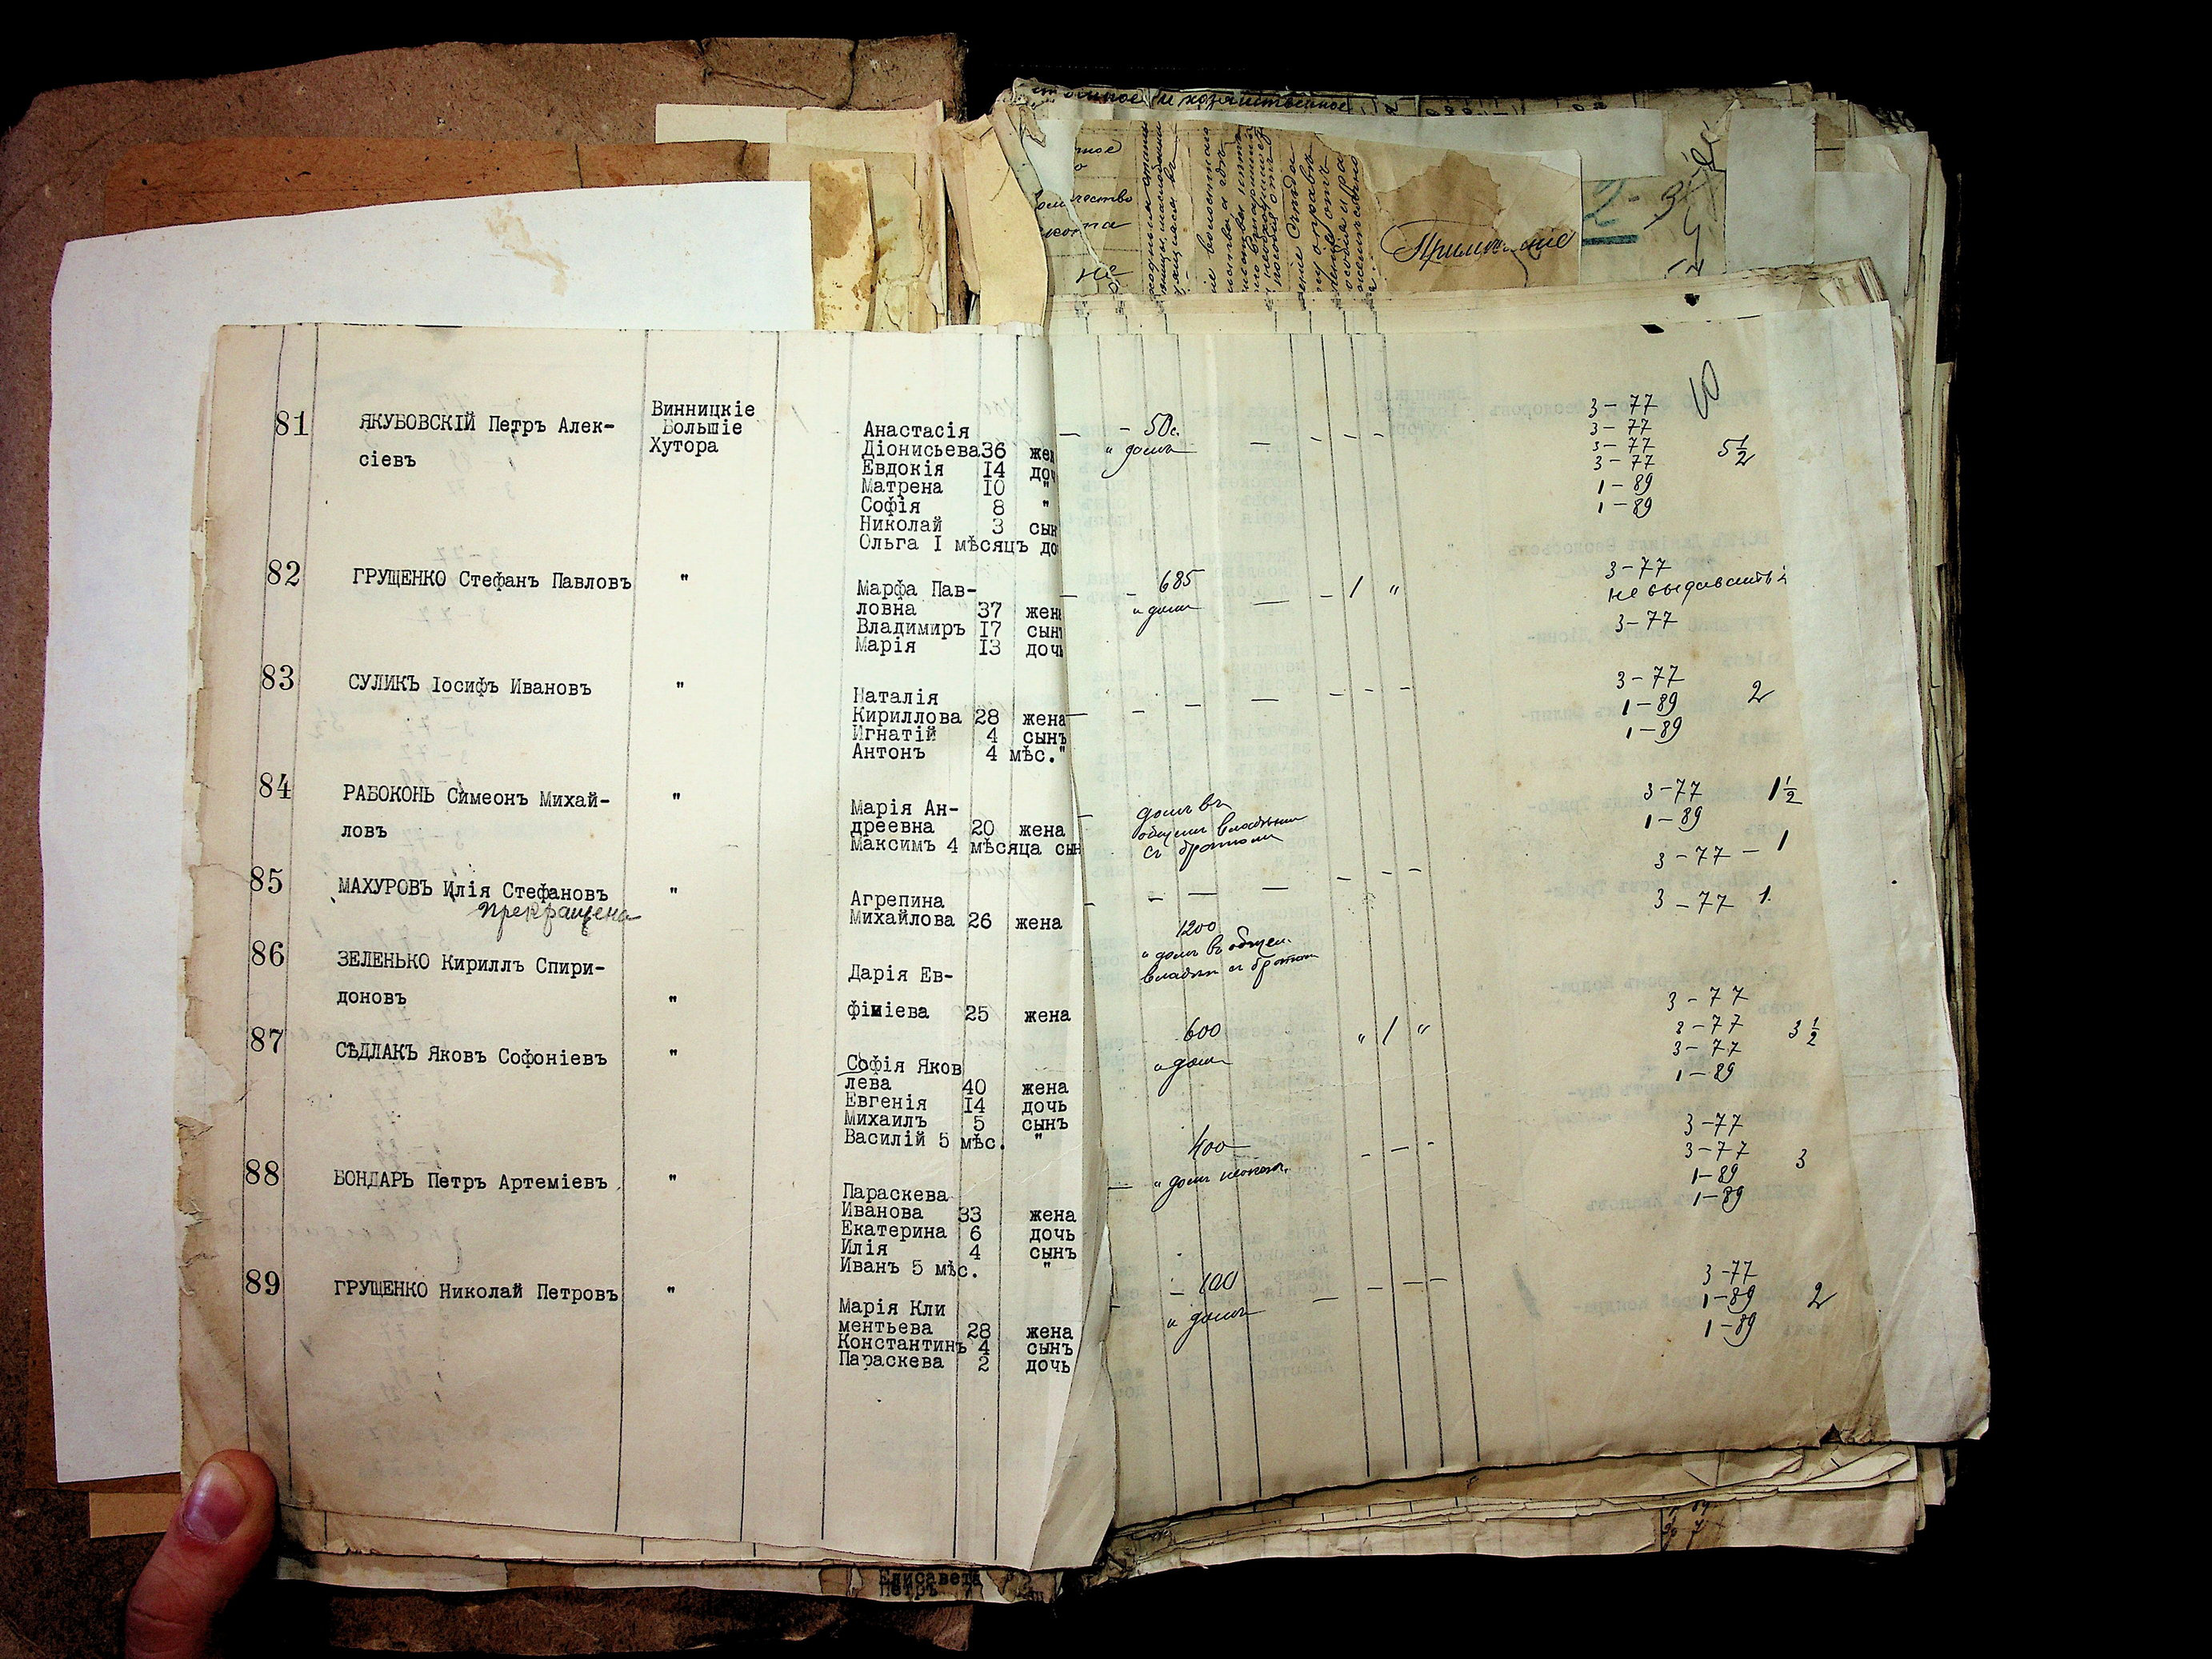 Примѣчаніе
81 ЯКУБОВСКІЙ Петръ Алек-
сіевъ
Винницкіе
Большіе
Хутора
Анастасія
Діонисьева 36 жен
Евдокія 14 доч
Матрена 10 "
Софія 8 "
Николай 3 сын
Ольга I мѣсяцъ до
— - 50 с. — - - -
" домъ
3-77
3-77
3-77
3-77 5 1/2
1-89
1-89
82 ГРУЩЕНКО Стефанъ Павловъ "
Марфа Пав-
ловна 37 жена
Владимиръ 17 сынъ
Марія 13 дочь
— - 685 — - 1 "
" домъ
3-77
не выдавать
3-77
83 СУЛИКЪ Іосифъ Ивановъ "
Наталія
Кириллова 28 жена
Игнатій 4 сынъ
Антонъ 4 мѣс. "
— - - — - - -
3-77
1-89 2
1-89
84 РАБОКОНЬ Симеонъ Михай-
ловъ
"
Марія Ан-
дреевна 20 жена
Максимъ 4 мѣсяца сын
домъ въ
общемъ владѣніи
съ братьями
3-77 1 1/2
1-89
3-77 - 1
85 МАХУРОВЪ Илія Стефановъ "
прекращена
Агрепина
Михайлова 26 жена
- - — — - - -
3-77 1.
86 ЗЕЛЕНЬКО Кирилъ Спири-
доновъ "
Дарія Ев-
фиміева 25 жена
1200
" домъ въ общем.
87 СѢДЛАКЪ Яковъ Софоніевъ "
Софія Яков
лева 40 жена
Евгенія 14 дочь
Михаилъ 5 сынъ
Василій 5 мѣс. "
600 " 1 "
" домъ
3-77
3-77 3 1/2
3-77
1-89
88 БОНДАРЬ Петръ Артеміевъ "
Параскева
Иванова 33 жена
Екатерина 6 дочь
Илія 4 сынъ
Иванъ 5 мѣс. "
400 - - -
" домъ
3-77
3-77 3
1-89
1-89
89 ГРУЩЕНКО Николай Петровъ "
Марія Кли
ментьева 28 жена
Константинъ 4 сынъ
Параскева 2 дочь
- 100 — - - -
" домъ
3-77
1-89 2
1-89
Елисавета
Петръ